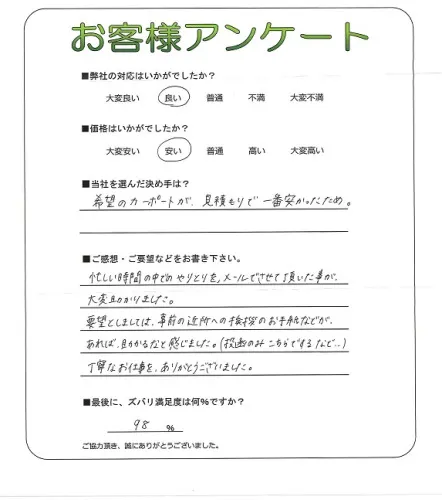 お客様アンケート
■弊社の対応はいかがでしたか？
大変良い 良い 普通 不満 大変不満
■価格はいかがでしたか？
大変安い 安い 普通 高い 大変高い
■当社を選んだ決め手は？
希望のカーポートが、見積もりで一番安かったため。
■ご感想・ご要望などをお書き下さい。
忙しい時間の中でのやりとりを、メールでさせて頂いた事が、
大変助かりました。
要望としましては、事前の近所への挨拶のお手紙などが、
あれば、助かるなと感じました。(投函のみこちらでするなど…)
丁寧なお仕事を、ありがとうございました。
■最後に、ズバリ満足度は何％ですか？
98 %
ご協力頂き、誠にありがとうございました。